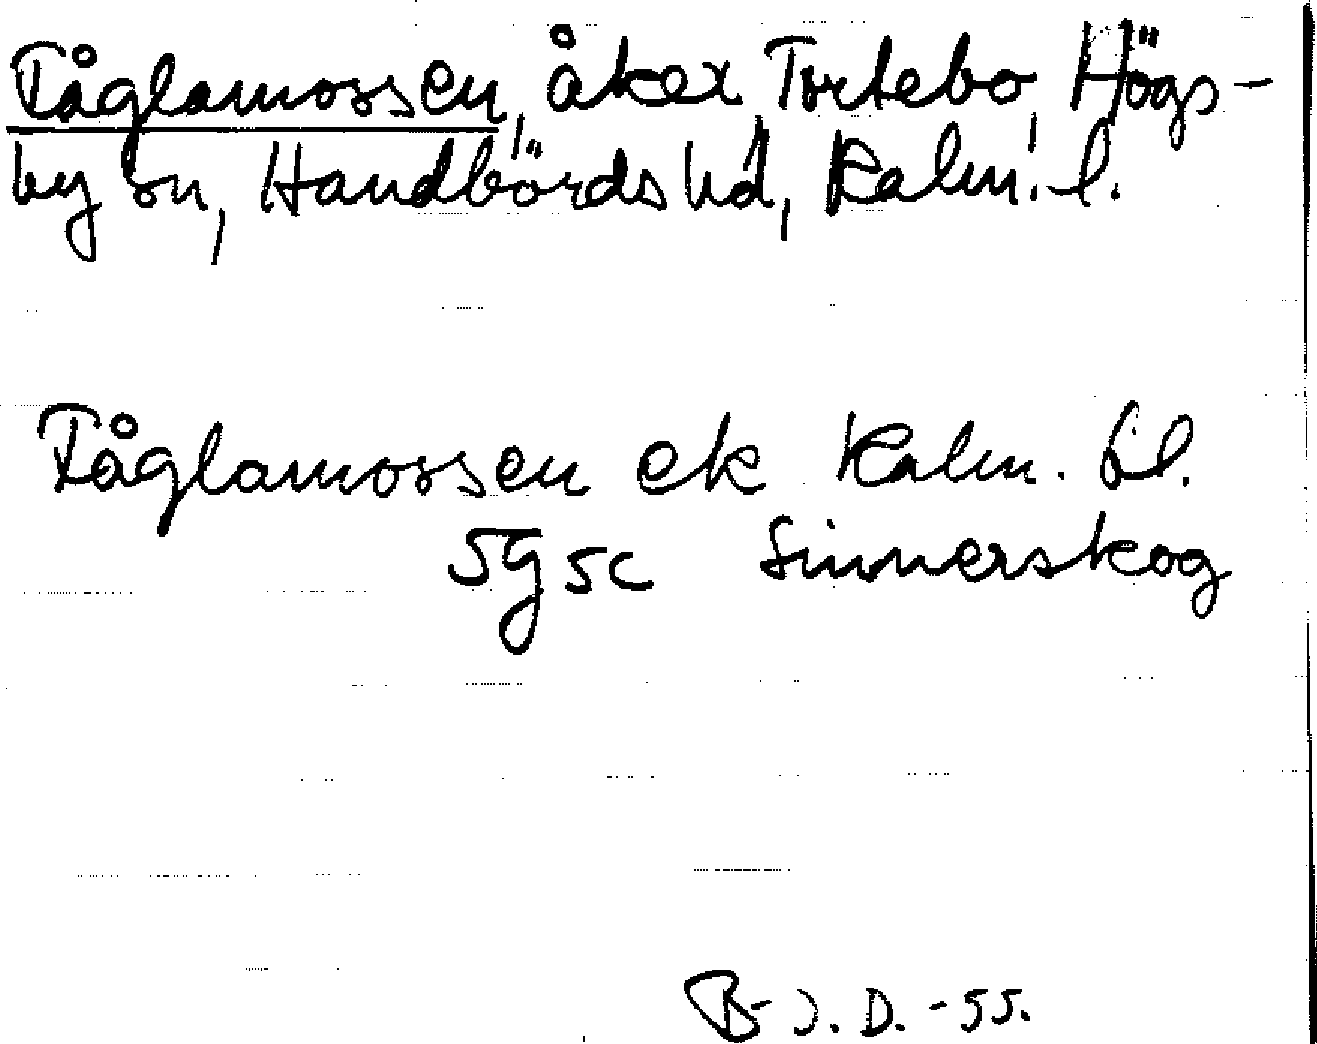 Tåglamossen, åker Tortebo, Högs-
by sn, Handbörds hd, Kalm. l.
Tåglamossen ek Kalm. bl.
5g5c Sinnerskog
B-J. D. -55.